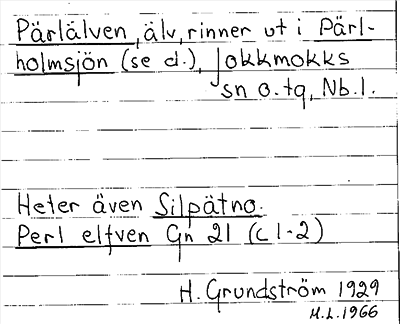 Pärlälven, älv, rinner ut i Pärl-
holmsjön (se d.), Jokkmokks
sn o. tg, Nb.l.
Heter även Silpätno.
Perl elfven Gn 21 (c 1-2)
H. Grundström 1929
H.L. 1966